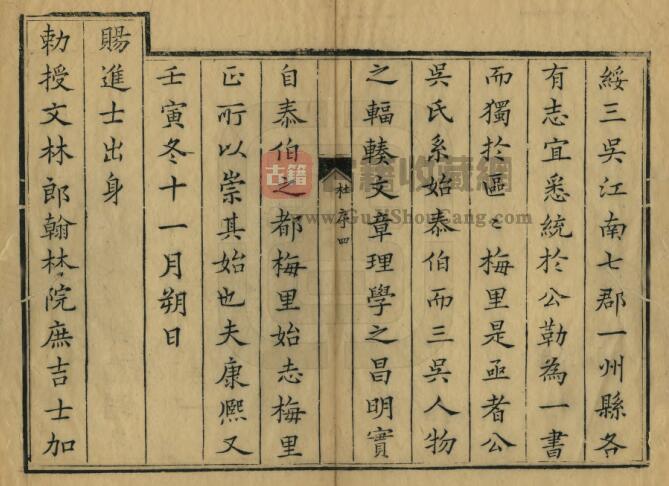 綏三吳江南七郡一州縣各
有志宜悉統於公勒為一書
而獨於區〻梅里是亟者公
吳氏系始泰伯而三吳人物
之輻輳文章理學之昌明實
杜序 四
自泰伯之都梅里始志梅里
正所以崇其始也夫康熙又
壬寅冬十一月朔日
賜進士出身
勅授文林郎翰林院庶吉士加
古籍
古籍收藏網
www.GuJiShouCang.com